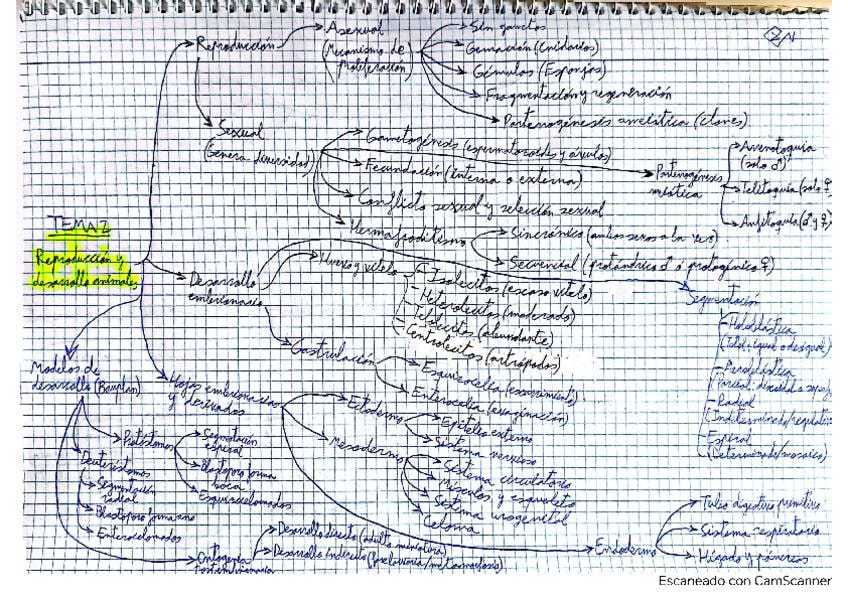 Reproducción
Asexual
(Mecanismo de
proliferación)
Sin gametos
Gemación (Cnidarios)
Gémulas (Esponjas)
Fragmentación y regeneración
Partenogénesis ameiótica (clones)
Sexual
(Genera diversidad)
Gametogénesis (espermatozoides y óvulos)
Fecundación (interna o externa)
Conflicto sexual y selección sexual
Hermafroditismo
Sincrónico (ambos sexos a la vez)
Secuencial (protándrico ♂ ó protogínico ♀)
Partenogénesis
meiótica
Arrenotoquia
(solo ♂)
Telitoquia (solo ♀
Anfitoquia (♂ y ♀)
TEMA 2
Reproducción y
desarrollo animales
Desarrollo
embrionario
Huevo y vitelo
- Isolecitos (escaso vitelo)
- Heterolecitos (moderado)
- Telolecitos (abundante)
- Centrolecitos (artrópodos)
Segmentación
- Holoblástica
(Total: igual o desigual)
- Meroblástica
(Parcial: discoidal o
- Radial
(Indeterminado/
- Espiral
(Determinado/mosaico)
Gastrulación
Esquizocelia (escurrimiento)
Enterocelia (evaginación)
Modelos de
desarrollo (Bauplan)
Protóstomos
Segmentación
espiral
Blastoporo forma
boca
Esquizocelomados
Deuteróstomos
Segmentación
radial
Blastoporo forma ano
Enterocelomados
Ontogenia
Postembrionaria
Desarrollo directo (adulto miniatura)
Desarrollo indirecto (
Hojas embrionarias
y derivados
Ectodermo
Epitelio externo
Sistema nervioso
Mesodermo
Sistema circulatorio
Músculos y esqueleto
Sistema urogenital
Celoma
Endodermo
Tubo digestivo primitivo
Sistema respiratorio
Hígado y páncreas
Escaneado con CamScanner